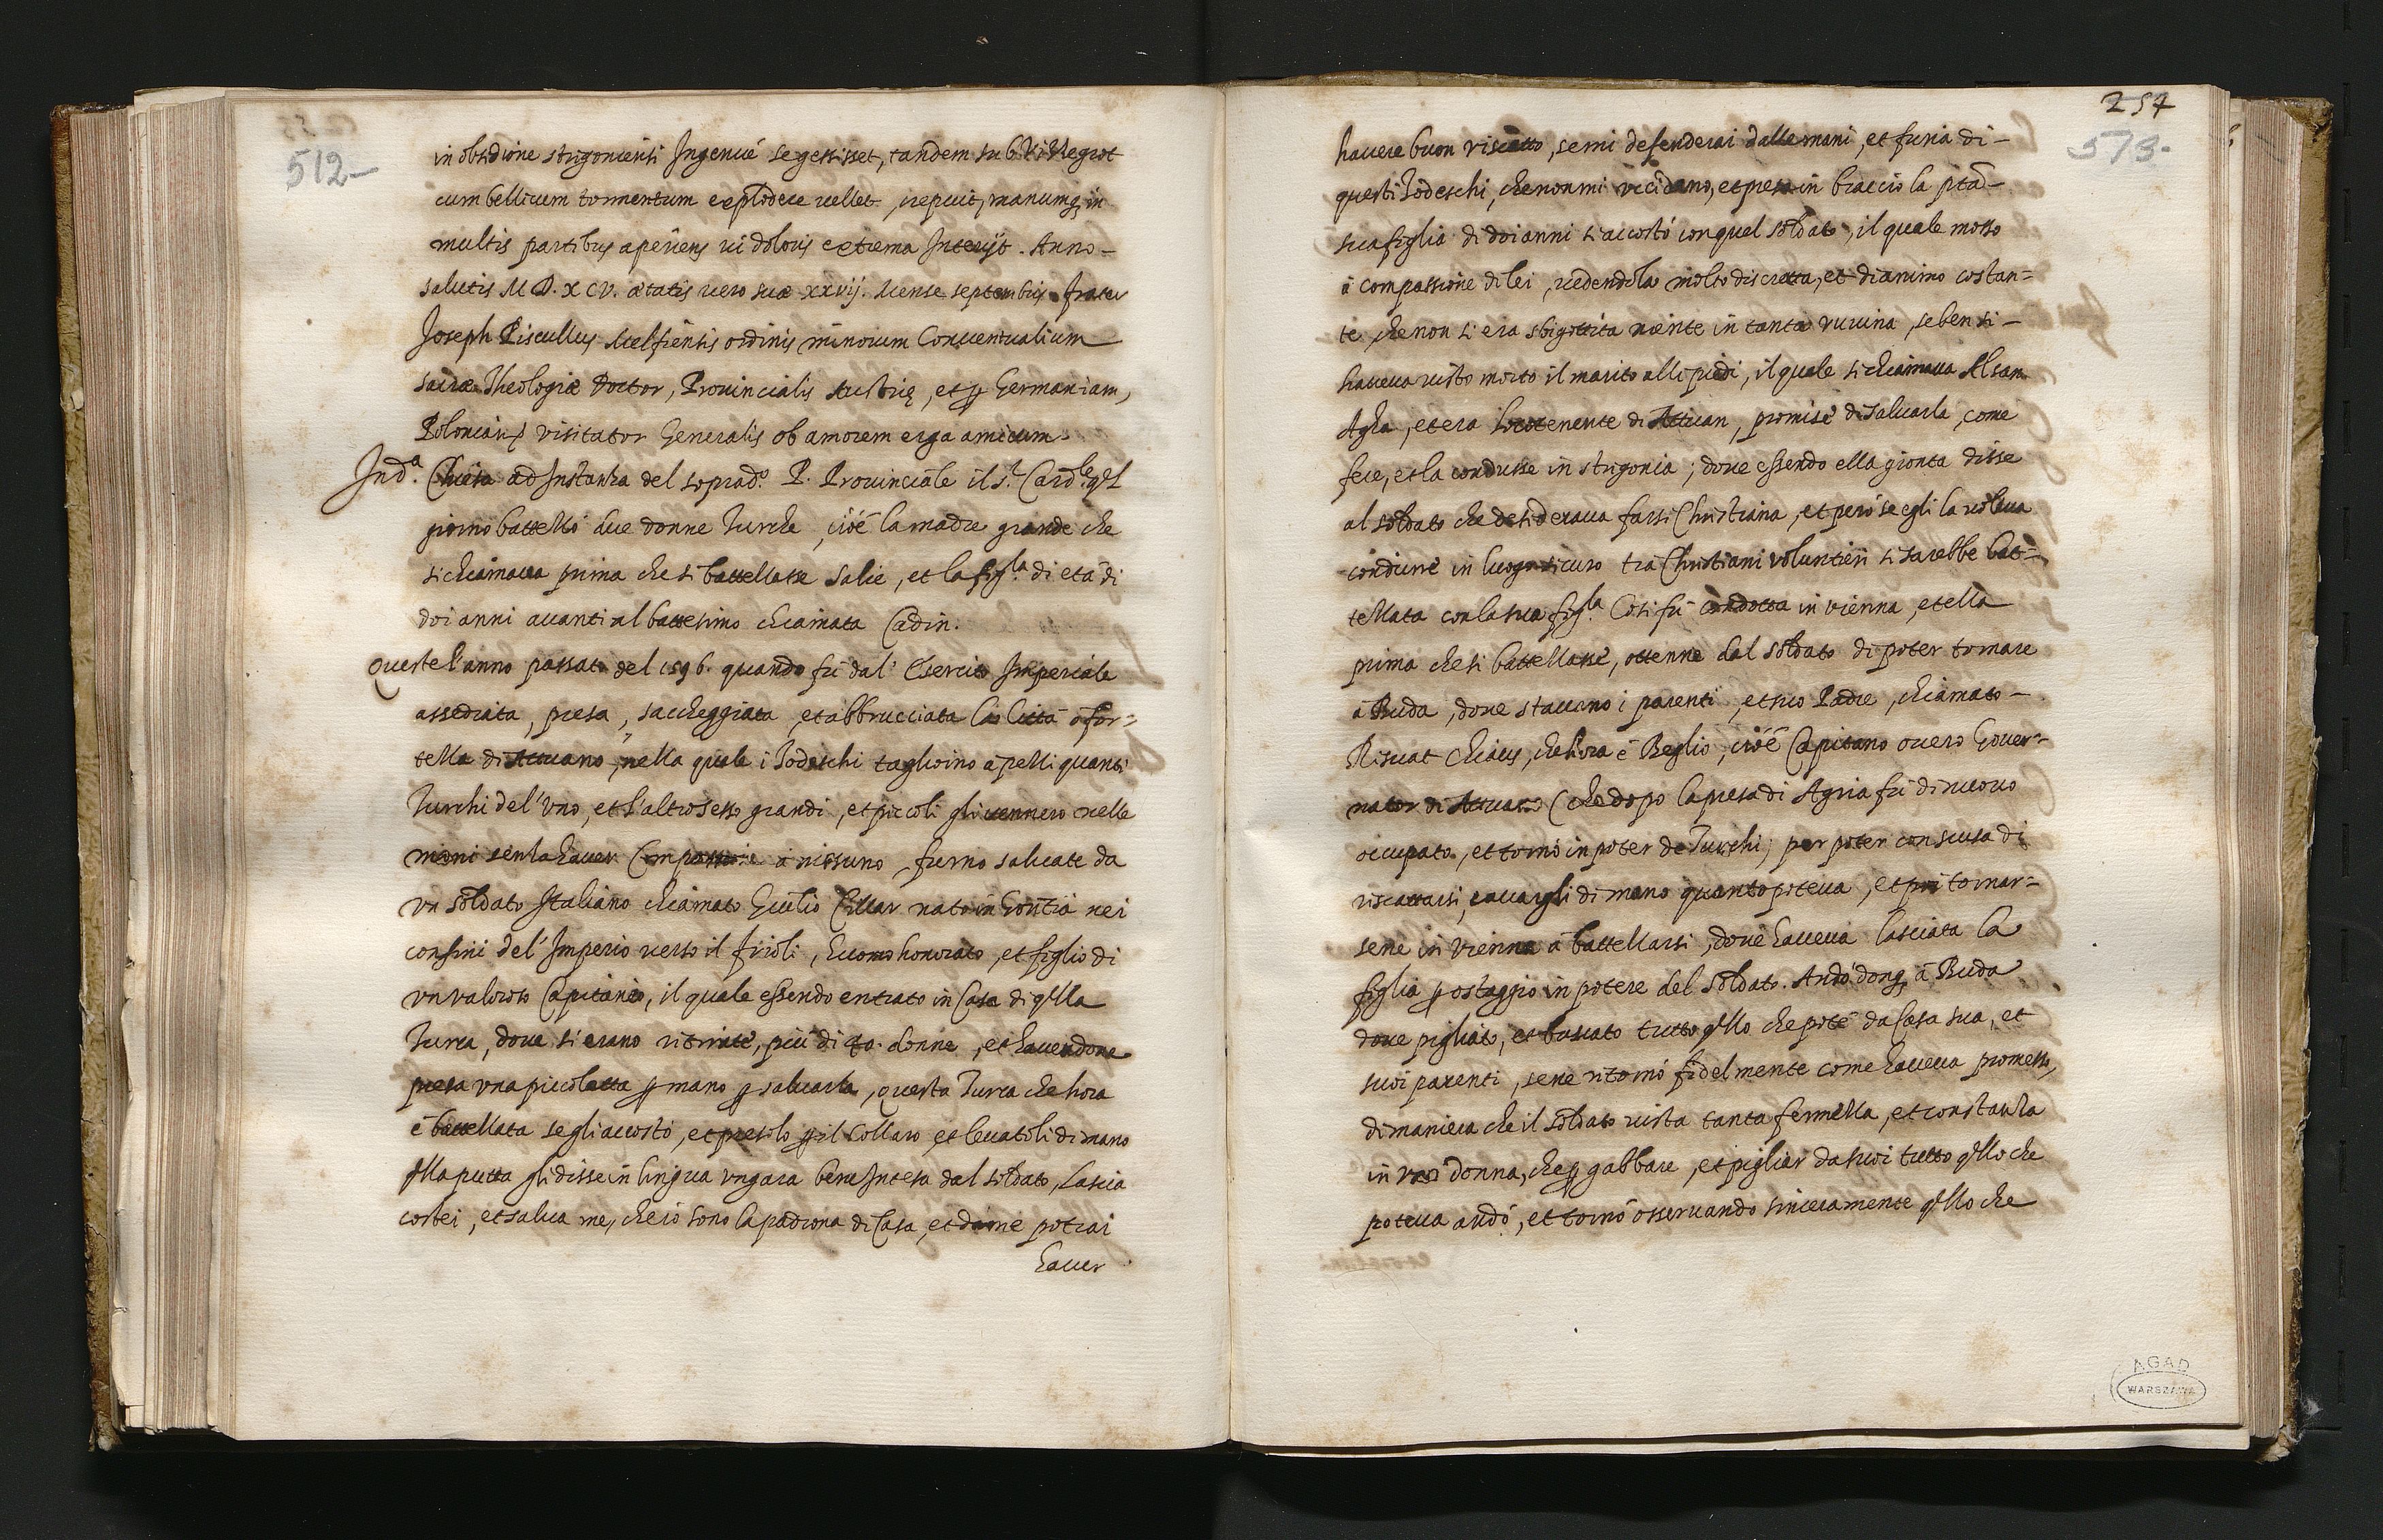 512-
in obsidione strigoniensi Ingenué se gessisset, tandem sub
cum bellicum tormentum explodere uellet, crepuit, manumq; in
multis partibus aperiens ui doloris extrema Interijt. Anno-
salutis M D. X CV. ætatis uero suæ xxvij. Mense septembris. frater
Joseph Piscullus Melfiensis ordinis minorum Conuentualium
sacræ Theologiæ Doctor, Prouincialis Austrię, et ꝑ Germaniam,
Poloniamq; visitator Generalis ob amorem erga amicum.
In dᵃ. Chiesa ad Instanza del sopradº. P. Prouinciale il sʳ. Cardˡᵉ. qˡ
giorno battezzó due donne Turche, cióé la madre grande che
si chiamaua prima che si battezzasse Salie, et la figˡᵃ. di etá di
doi anni auanti al battesimo chiamata Cadin.
Queste l'anno passato del 1596. quando fú dal' Esercito Imperiale
assediata, presa, saccheggiata et abbrucciata la Cittá ó for=
tezza di Attuano, nella quale i Todeschi tagliorno á pezzi quanti
Turchi del' vno, et l'altro sesso grandi, et piccoli gli uennero nelle
mani senza hauer Compassione á nissuno, furno saluate da
vn soldato Italiano chiamato Giulio nato in Goritia nei
confini del' Imperio uerso il frioli, huomo honorato, et figlio di
vn valoroso Capitanio, il quale essendo entrato in Casa di qlla
Turca, doue si erano ritirate, piú di 40. donne, et hauendone
presa vna piccoletta ꝑ mano ꝑ saluarla, questa Turca che hora
é battezzata se gli accostó, et presolo ꝑ il Collaro, et leuatoli di mano
qlla putta gli disse in lingua vngara bene Intesa dal soldato, Lascia
costei, et salua me, che io sono la padrona di Casa, et da me potrai
hauer
257
573-
hauere buon riscatto, se mi defenderai dalle mani, et furia di-
questi Todeschi, che non mi vccidano, et presa in braccio la ptā-
sua figlia di doi anni si accostó con quel soldato, il quale mosso
á compassione di lei, uedendola molto discretta, et di animo costan=
te, che non si era sbigottita niente in tanta ruuina, seben si-
haueua uisto morto il marito alli piedi, il quale si chiamaua Alsan
Agha, et era locotenente di Attuan, promise di saluarla, come
fece, et la condusse in strigonia; doue essendo ella gionta disse
al soldato che desideraua farsi Christiana, et peró se egli la uoleua
condurre in luogo sicuro tra Christiani voluntieri si sarebbe bat=
tezzata con la sua figˡᵃ. Cosi fú condotta in vienna, et ella
prima che si battezzasse, ottenne dal soldato di poter tornare
á Buda, doue stauano i parenti, et suo Padre, chiamato-
Risuat Chiaus, che hora é Beglio, cióé Capitano ouero Gouer=
nator di Attuano (che dopo la presa di Agria fú di nuouo
occupato, et tornó in poter de Turchi; per poter con scusa di
riscattarsi, cauargli di mano quanto poteua, et poi tornar=
sene in Vienna á battezzarsi, doue haueua lasciata la
figlia ꝑ ostaggio in potere del soldato. Andó donq; á Buda
doue pigliato, et buscato tutto qllo che poté da Casa sua, et
suoi parenti, se ne ritornó fidelmente come haueua promesso,
di maniera che il soldato uista tanta fermezza, et constanza
in vna donna, che ꝑ gabbare, et pigliar da suoi tutto qllo che
poteua andó, et tornó osseruando sinceramente qllo che
AGAD
WARSZAWA